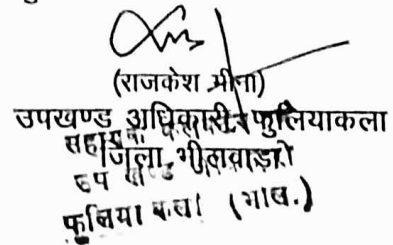 (राजकेश मीना)
उपखण्ड अधिकारी फुलियाकला
जिला भीलवाड़ा
उप
फुलिया कलां (भील.)